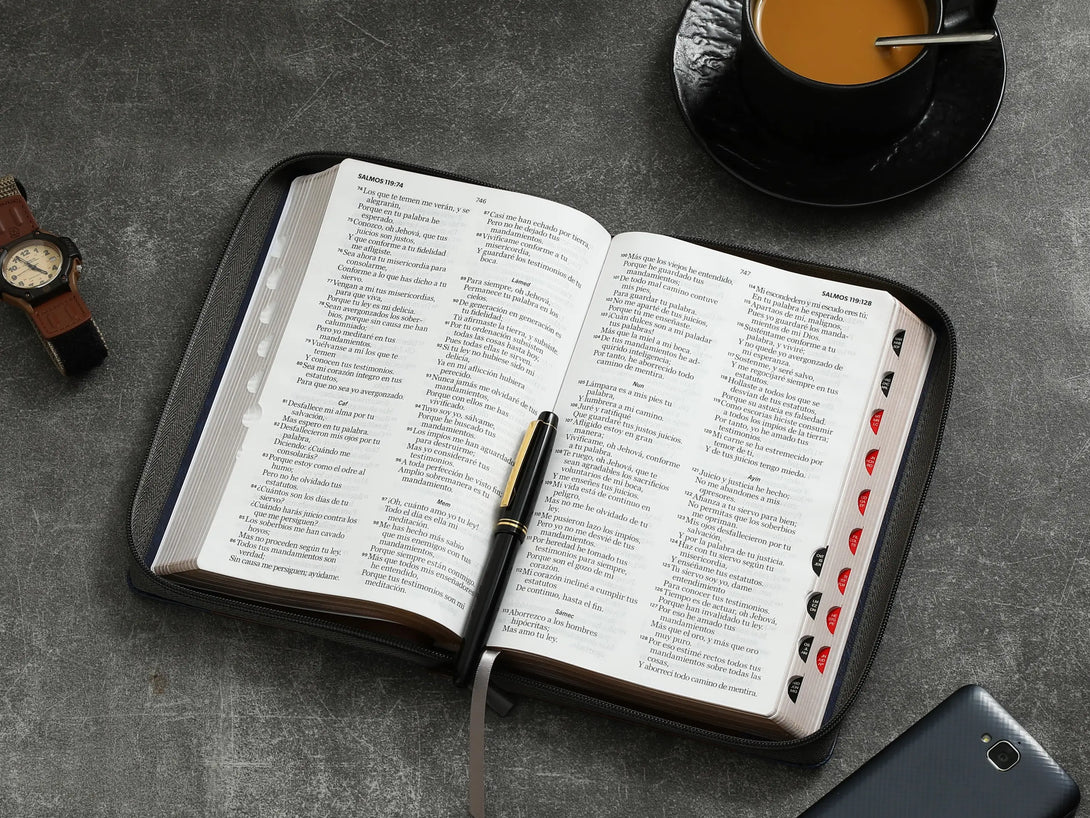 SALMOS 119:74
746
74 Los que te temen me verán, y se
alegrarán,
Porque en tu palabra he
esperado.
75 Conozco, oh Jehová, que tus
juicios son justos,
Y que conforme a tu fidelidad
me afligiste.
76 Sea ahora tu misericordia para
consolarme,
Conforme a lo que has dicho a tu
siervo.
77 Vengan a mí tus misericordias,
para que viva,
Porque tu ley es mi delicia.
78 Sean avergonzados los sober-
bios, porque sin causa me han
calumniado;
Pero yo meditaré en tus
mandamientos.
79 Vuélvanse a mí los que te
temen
Y conocen tus testimonios.
80 Sea mi corazón íntegro en tus
estatutos,
Para que no sea yo avergonzado.
Caf
81 Desfallece mi alma por tu
salvación,
Mas espero en tu palabra.
82 Desfallecieron mis ojos por tu
palabra,
Diciendo: ¿Cuándo me
consolarás?
83 Porque estoy como el odre al
humo;
Pero no he olvidado tus
estatutos.
84 ¿Cuántos son los días de tu
siervo?
¿Cuándo harás juicio contra los
que me persiguen?
85 Los soberbios me han cavado
hoyos;
Mas no proceden según tu ley.
86 Todos tus mandamientos son
verdad;
Sin causa me persiguen; ayúdame.
87 Casi me han echado por tierra,
Pero no he dejado tus
mandamientos.
88 Vivifícame conforme a tu
misericordia,
Y guardaré los testimonios de tu
boca.
Lámed
89 Para siempre, oh Jehová,
Permanece tu palabra en los
cielos.
90 De generación en generación es
tu fidelidad;
Tú afirmaste la tierra, y subsiste.
91 Por tu ordenación subsisten
todas las cosas hasta hoy,
Pues todas ellas te sirven.
92 Si tu ley no hubiese sido mi
delicia,
Ya en mi aflicción hubiera
perecido.
93 Nunca jamás me olvidaré de tus
mandamientos,
Porque con ellos me has
vivificado.
94 Tuyo soy yo, sálvame,
Porque he buscado tus
mandamientos.
95 Los impíos me han aguardado
para destruirme;
Mas yo consideraré tus
testimonios.
96 A toda perfección he visto fin;
Amplio sobremanera es tu
mandamiento.
Mem
97 ¡Oh, cuánto amo yo tu ley!
Todo el día es ella mi
meditación.
98 Me has hecho más sabio
que mis enemigos con tus
mandamientos,
Porque siempre están conmigo.
99 Más que todos mis enseñadores
he entendido,
Porque tus testimonios son mi
meditación.
747
SALMOS 119:128
100 Más que los viejos he entendido,
Porque he guardado tus
mandamientos;
101 De todo mal camino contuve
mis pies,
Para guardar tu palabra.
102 No me aparté de tus juicios,
Porque tú me enseñaste.
103 ¡Cuán dulces son a mi paladar
tus palabras!
Más que la miel a mi boca.
104 De tus mandamientos he ad-
quirido inteligencia;
Por tanto, he aborrecido todo
camino de mentira.
Nun
105 Lámpara es a mis pies tu
palabra,
Y lumbrera a mi camino.
106 Juré y ratifiqué
Que guardaré tus justos juicios.
107 Afligido estoy en gran
manera;
Vivifícame, oh Jehová, conforme
a tu palabra.
108 Te ruego, oh Jehová, que te
sean agradables los sacrificios
voluntarios de mi boca,
Y me enseñes tus juicios.
109 Mi vida está de continuo en
peligro,
Mas no me he olvidado de tu
ley.
110 Me pusieron lazo los impíos,
Pero yo no me desvié de tus
mandamientos.
111 Por heredad he tomado tus
testimonios para siempre,
Porque son el gozo de mi
corazón.
112 Mi corazón incliné a cumplir tus
estatutos
De continuo, hasta el fin.
Sámec
113 Aborrezco a los hombres
hipócritas;
Mas amo tu ley.
114 Mi escondedero y mi escudo eres tú;
En tu palabra he esperado.
115 Apartaos de mí, malignos,
Pues yo guardaré los manda-
mientos de mi Dios.
116 Susténtame conforme a tu
palabra, y viviré;
Y no quede yo avergonzado de
mi esperanza.
117 Sosténme, y seré salvo,
Y me regocijaré siempre en tus
estatutos.
118 Hollaste a todos los que se
desvían de tus estatutos,
Porque su astucia es falsedad.
119 Como escorias hiciste consumir
a todos los impíos de la tierra;
Por tanto, yo he amado tus
testimonios.
120 Mi carne se ha estremecido por
temor de ti,
Y de tus juicios tengo miedo.
Ayin
121 Juicio y justicia he hecho;
No me abandones a mis
opresores.
122 Afianza a tu siervo para bien;
No permitas que los soberbios
me opriman.
123 Mis ojos desfallecieron por tu
salvación,
Y por la palabra de tu justicia.
124 Haz con tu siervo según tu
misericordia,
Y enséñame tus estatutos.
125 Tu siervo soy yo, dame
entendimiento
Para conocer tus testimonios.
126 Tiempo es de actuar, oh Jehová,
Porque han invalidado tu ley.
127 Por eso he amado tus
mandamientos
Más que el oro, y más que oro
muy puro.
128 Por eso estimé rectos todos tus
mandamientos sobre todas las
cosas,
Y aborrecí todo camino de mentira.